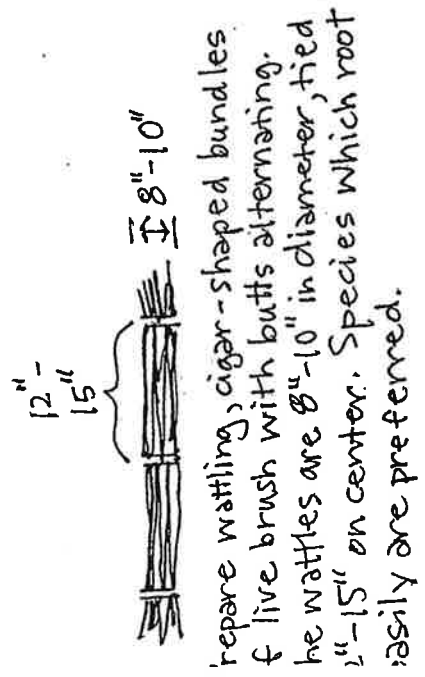 12"-
15"
8"-10"
repare wattling, cigar-shaped bundles
f live brush with butts alternating.
he wattles are 8"-10" in diameter, tied
2"-15" on center. Species which root
easily are preferred.